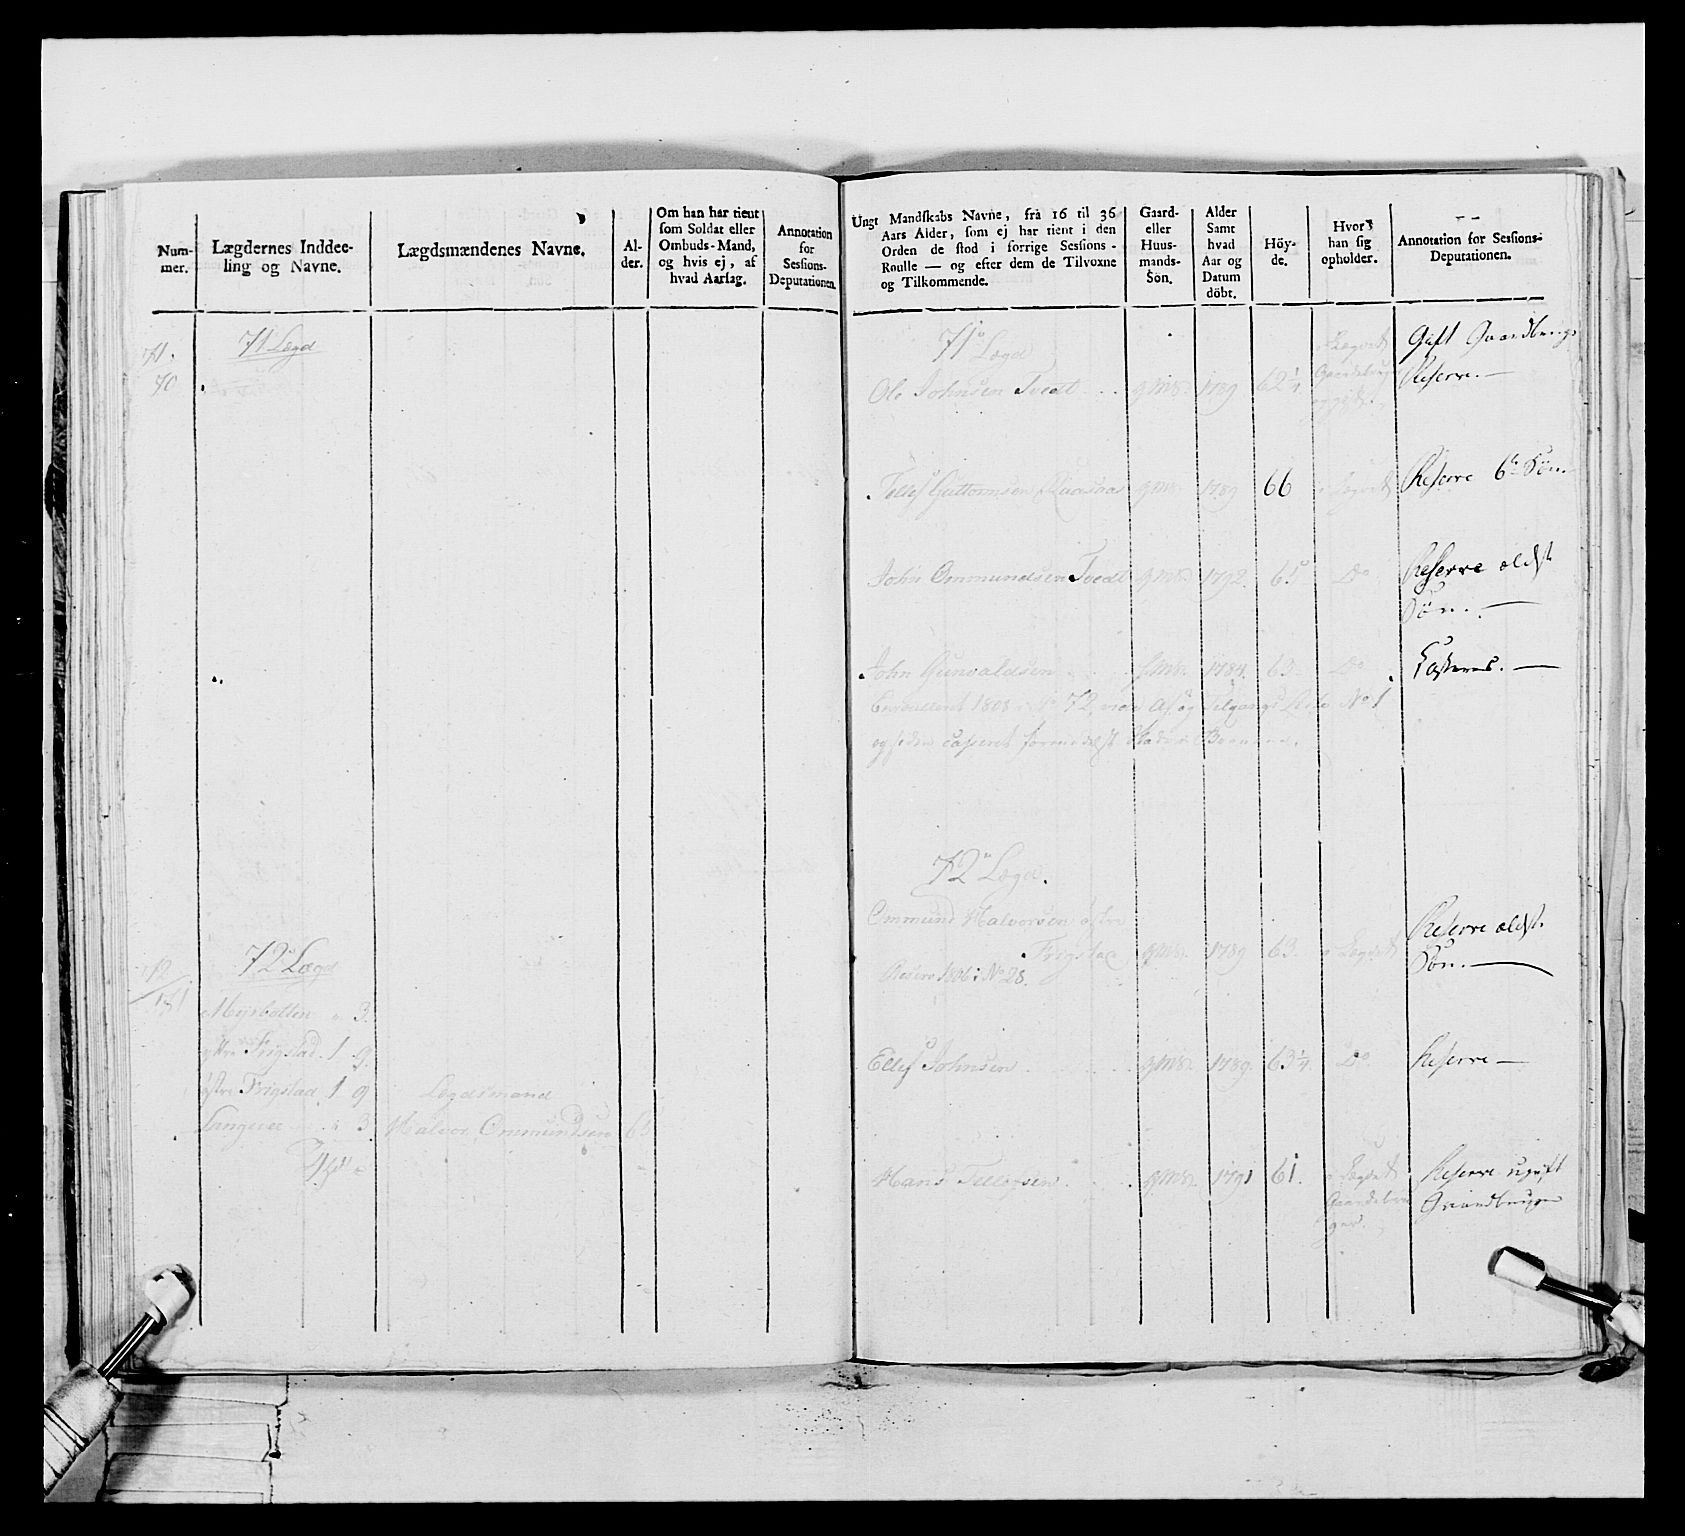 Num-
mer.
Lægdernes Inddee-
ling og Navne.
Lægdsmændenes Navne.
Al-
der.
Om han har tient
som Soldat eller
Ombuds-Mand,
og hvis ej, af
hvad Aarsag.
Annotation
for
Sessions-
Deputationen.
71.
70
71 Lægd
72 Lægd
Myrbotten 3.
Frigstad. 1 9.
østre Frigstad 1 9
Langevee 3
Lægdsmand
Halvor Ommundsen
Ungt Mandskabs Navne, fra 16 til 36
Aars Alder, som ej har tient i den
Orden de stod i forrige Sessions-
Roulle — og efter dem de Tilvoxne
og Tilkommende.
Gaard-
eller
Huus-
mands-
Søn.
Alder
Samt
hvad
Aar og
Datum
döbt.
Höy-
de.
Hvor
han sig
opholder.
Annotation for Sessions-
Deputationen.
71 Lægd
Gift Gaardbruger
Ole Johnsen Tvedt gms. 1789 62 1/4 Reserve. —
Tellef Guttormsen gms. 1789 66 i Lægdet Reserve 6te Søn
John Ommundsen Tvedt gms. 1792. 65 Do Reserve eldste
Søn. —
John Gunvaldsen gms. 1784. 63 Do Casseres. —
1808 No 72 Tilgangs Liste No 1
og siden casseret formedelst
72 Lægd.
Ommund Halvorsen østre
Frigstad gms. 1789 63. i Lægdet Reserve eldste
Søn. —
Reserve 1806 i No 28.
Ellef Johnsen gms. 1789. 63 1/4 Do Reserve —
Hans Tellefsen gms. 1791 61. i Lægdet Reserve ugift
Gaardbru- Gaardbruger
ger.